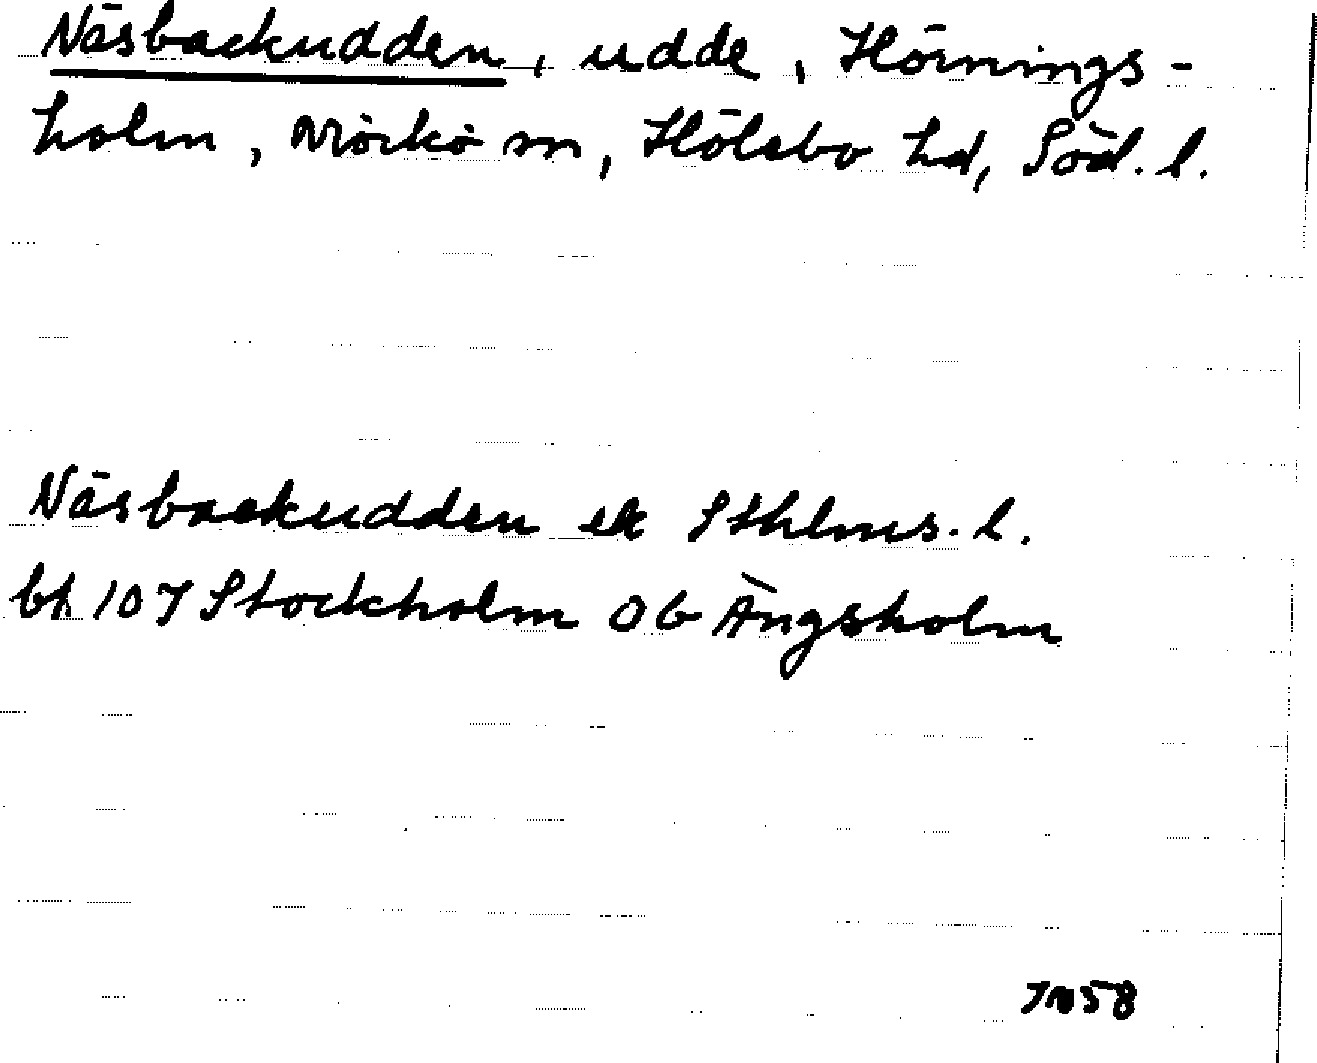 Näsbackudden, udde, Hörnings-
holm, Mörkö sn, Hölebo hd, Söd. l.
Näsbackudden ek Sthlms. l.
bl. 107 Stockholm Ob Ängsholm